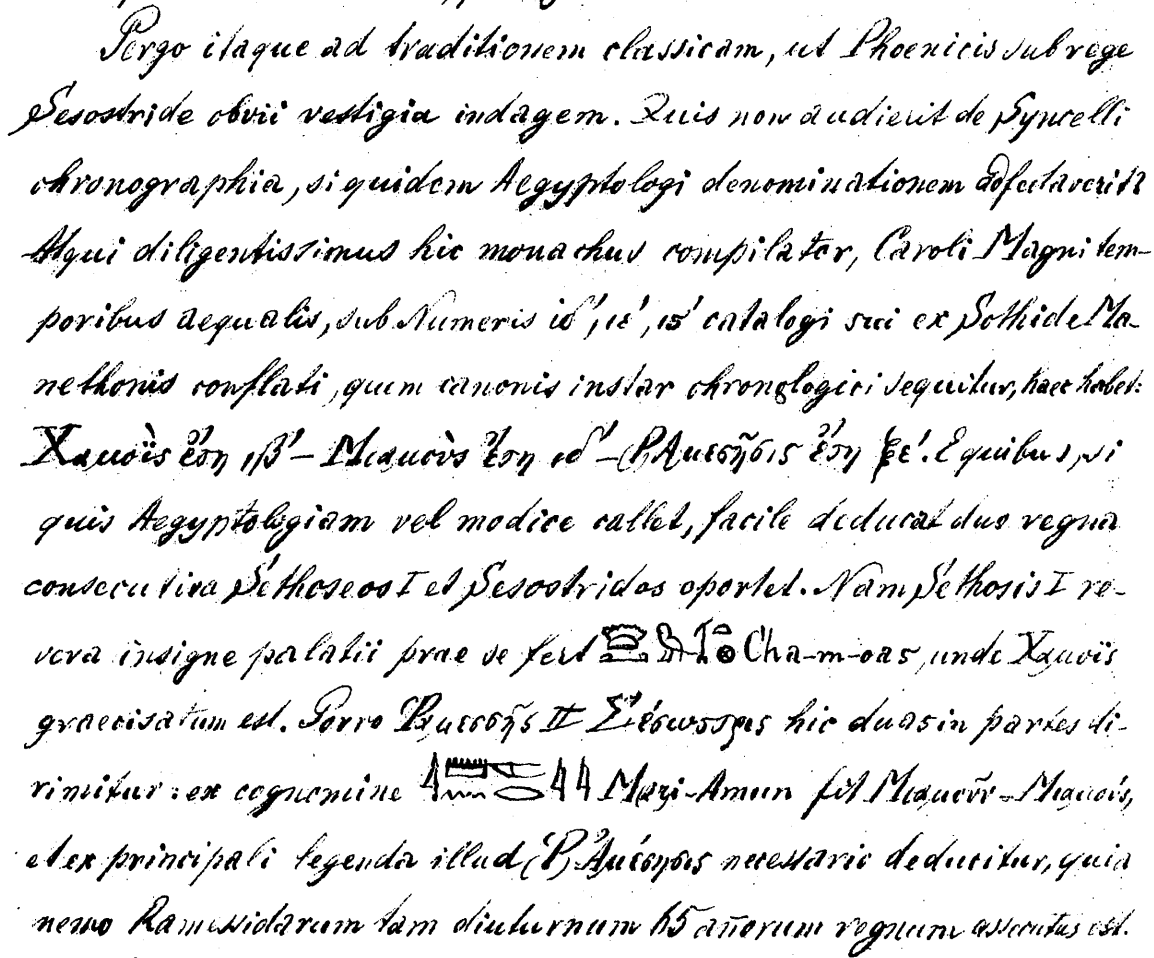 Pergo itaque ad traditionem classicam, ut Phoenicis sub rege
Sesostride obvii vestigia indagem. Quis non audierit de Syncelli
chronographia, si quidem Aegyptologi denominationem adfectaverit?
Atqui diligentissimus hic monachus compilator, Caroli Magni tem-
poribus aequalis, sub Numeris ιδ', ιε', ις' catalogi sui ex Sothide Ma-
nethonis conflati, quem canonis instar chronologici sequitur, haec habet:
Χαμοῒς ἔτη ιβ' – Μιαμοὺς ἔτη ιδ' – (Ρ)Αμεσῆσις ἔτη ξε'. E quibus, si
quis Aegyptologiam vel modice callet, facile deducat duo regna
consecutiva Séthoseos I et Sesostridos oportet. Nam Séthosis I re-
vera insigne palatii prae se fert Cha-m-oas, unde Χαμοῒς
graecisatum est. Porro Ῥαμεσσῆς II Σεσόωσρις hic duas in partes di-
rimitur: ex cognomine Mari-Amun fit Μιαμοῦν – Μιαμοὺς,
et ex principali legenda illud (Ῥ)Αμέσησις necessario deducitur, quia
nemo Ramessidarum tam diuturnum 65 añorum regnum assecutus est.